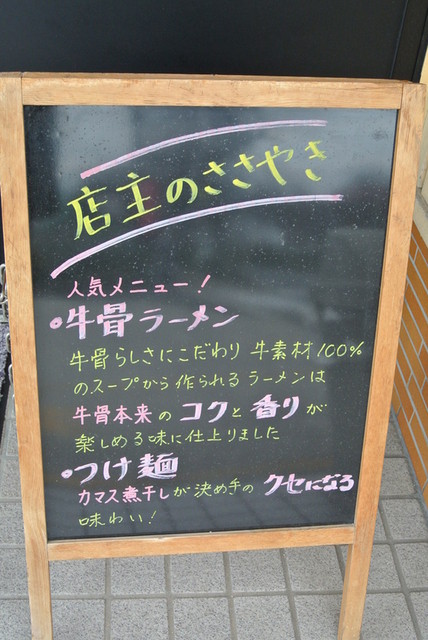 店主のささやき
人気メニュー！
•牛骨ラーメン
牛骨らしさにこだわり 牛素材100%
のスープから作られるラーメンは
牛骨本来のコクと香りが
楽しめる味に仕上りました
•つけ麺
カマス煮干しが決め手のクセになる
味わい！